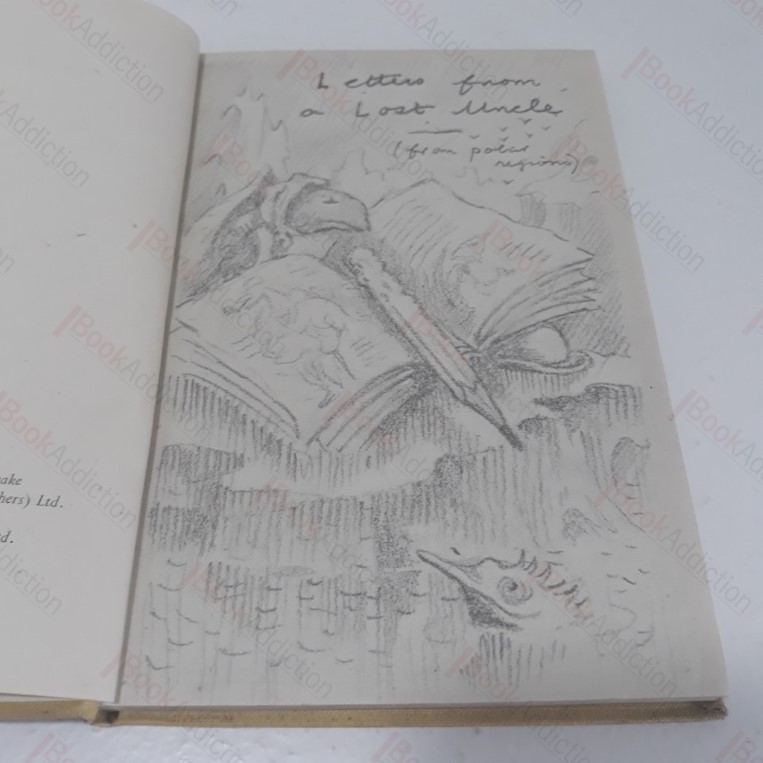 Letters from
a Lost Uncle
(from polar
regions)
ake
hers) Ltd.
d.